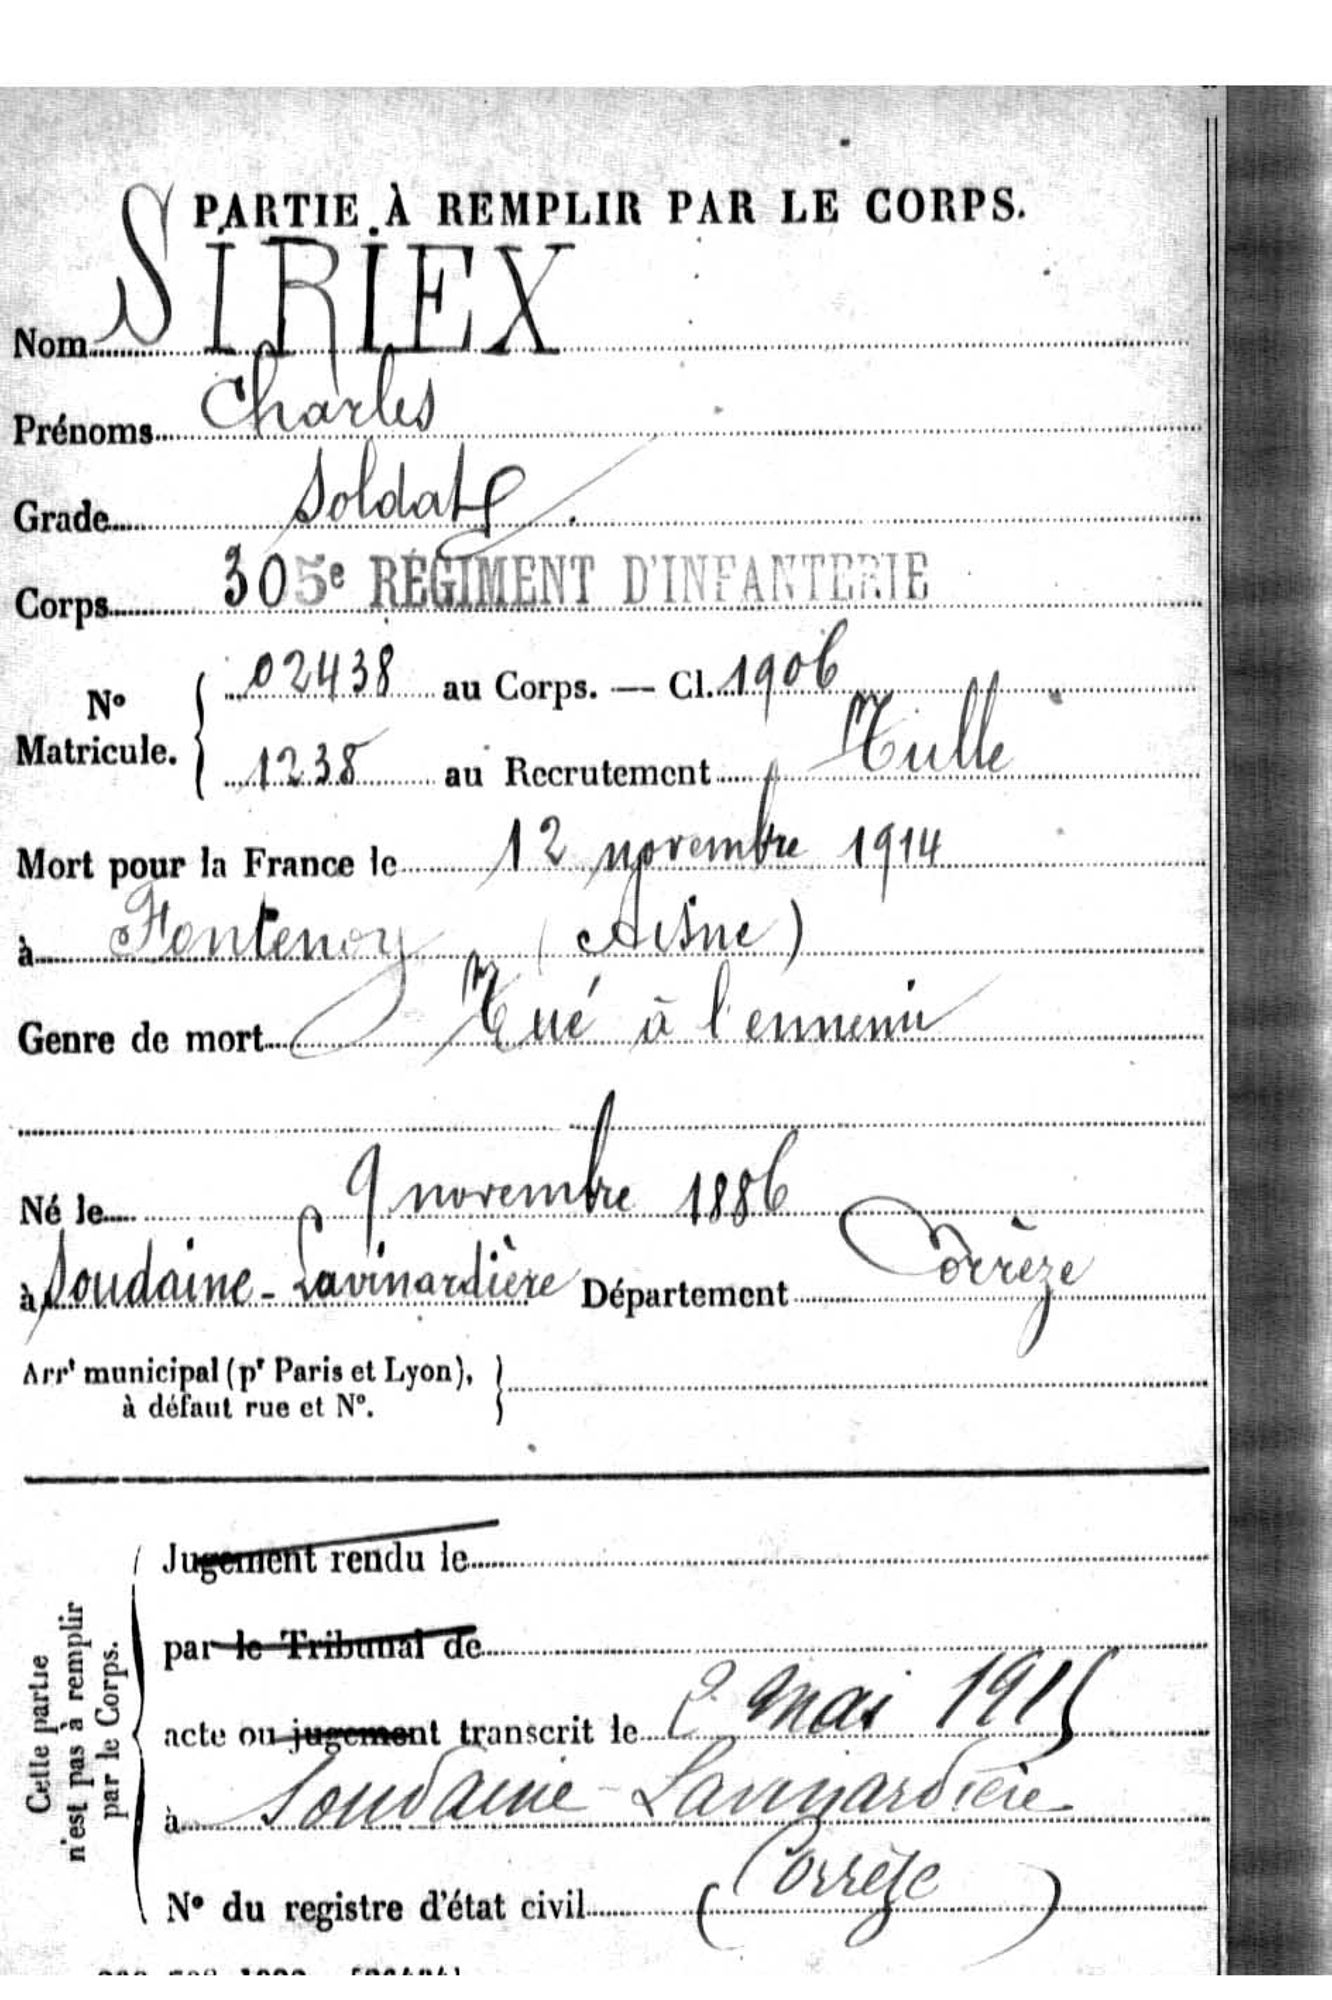 PARTIE À REMPLIR PAR LE CORPS.
Nom SIRIEX
Prénoms Charles
Grade Soldat
Corps 305e RÉGIMENT D'INFANTERIE
No Matricule. { 02438 au Corps. — Cl. 1906
1238 au Recrutement Tulle
Mort pour la France le 12 novembre 1914
à Fontenoy (Aisne)
Genre de mort Tué à l'ennemi
Né le 9 novembre 1886
à Soudaine-Lavinardière Département Corrèze
Arrt municipal (pr Paris et Lyon), à défaut rue et No. }
Cette partie n'est pas à remplir par le Corps.
Jugement rendu le
par le Tribunal de
acte ou jugement transcrit le 2 mai 1915
à Soudaine-Lavinardière
(Corrèze)
No du registre d'état civil